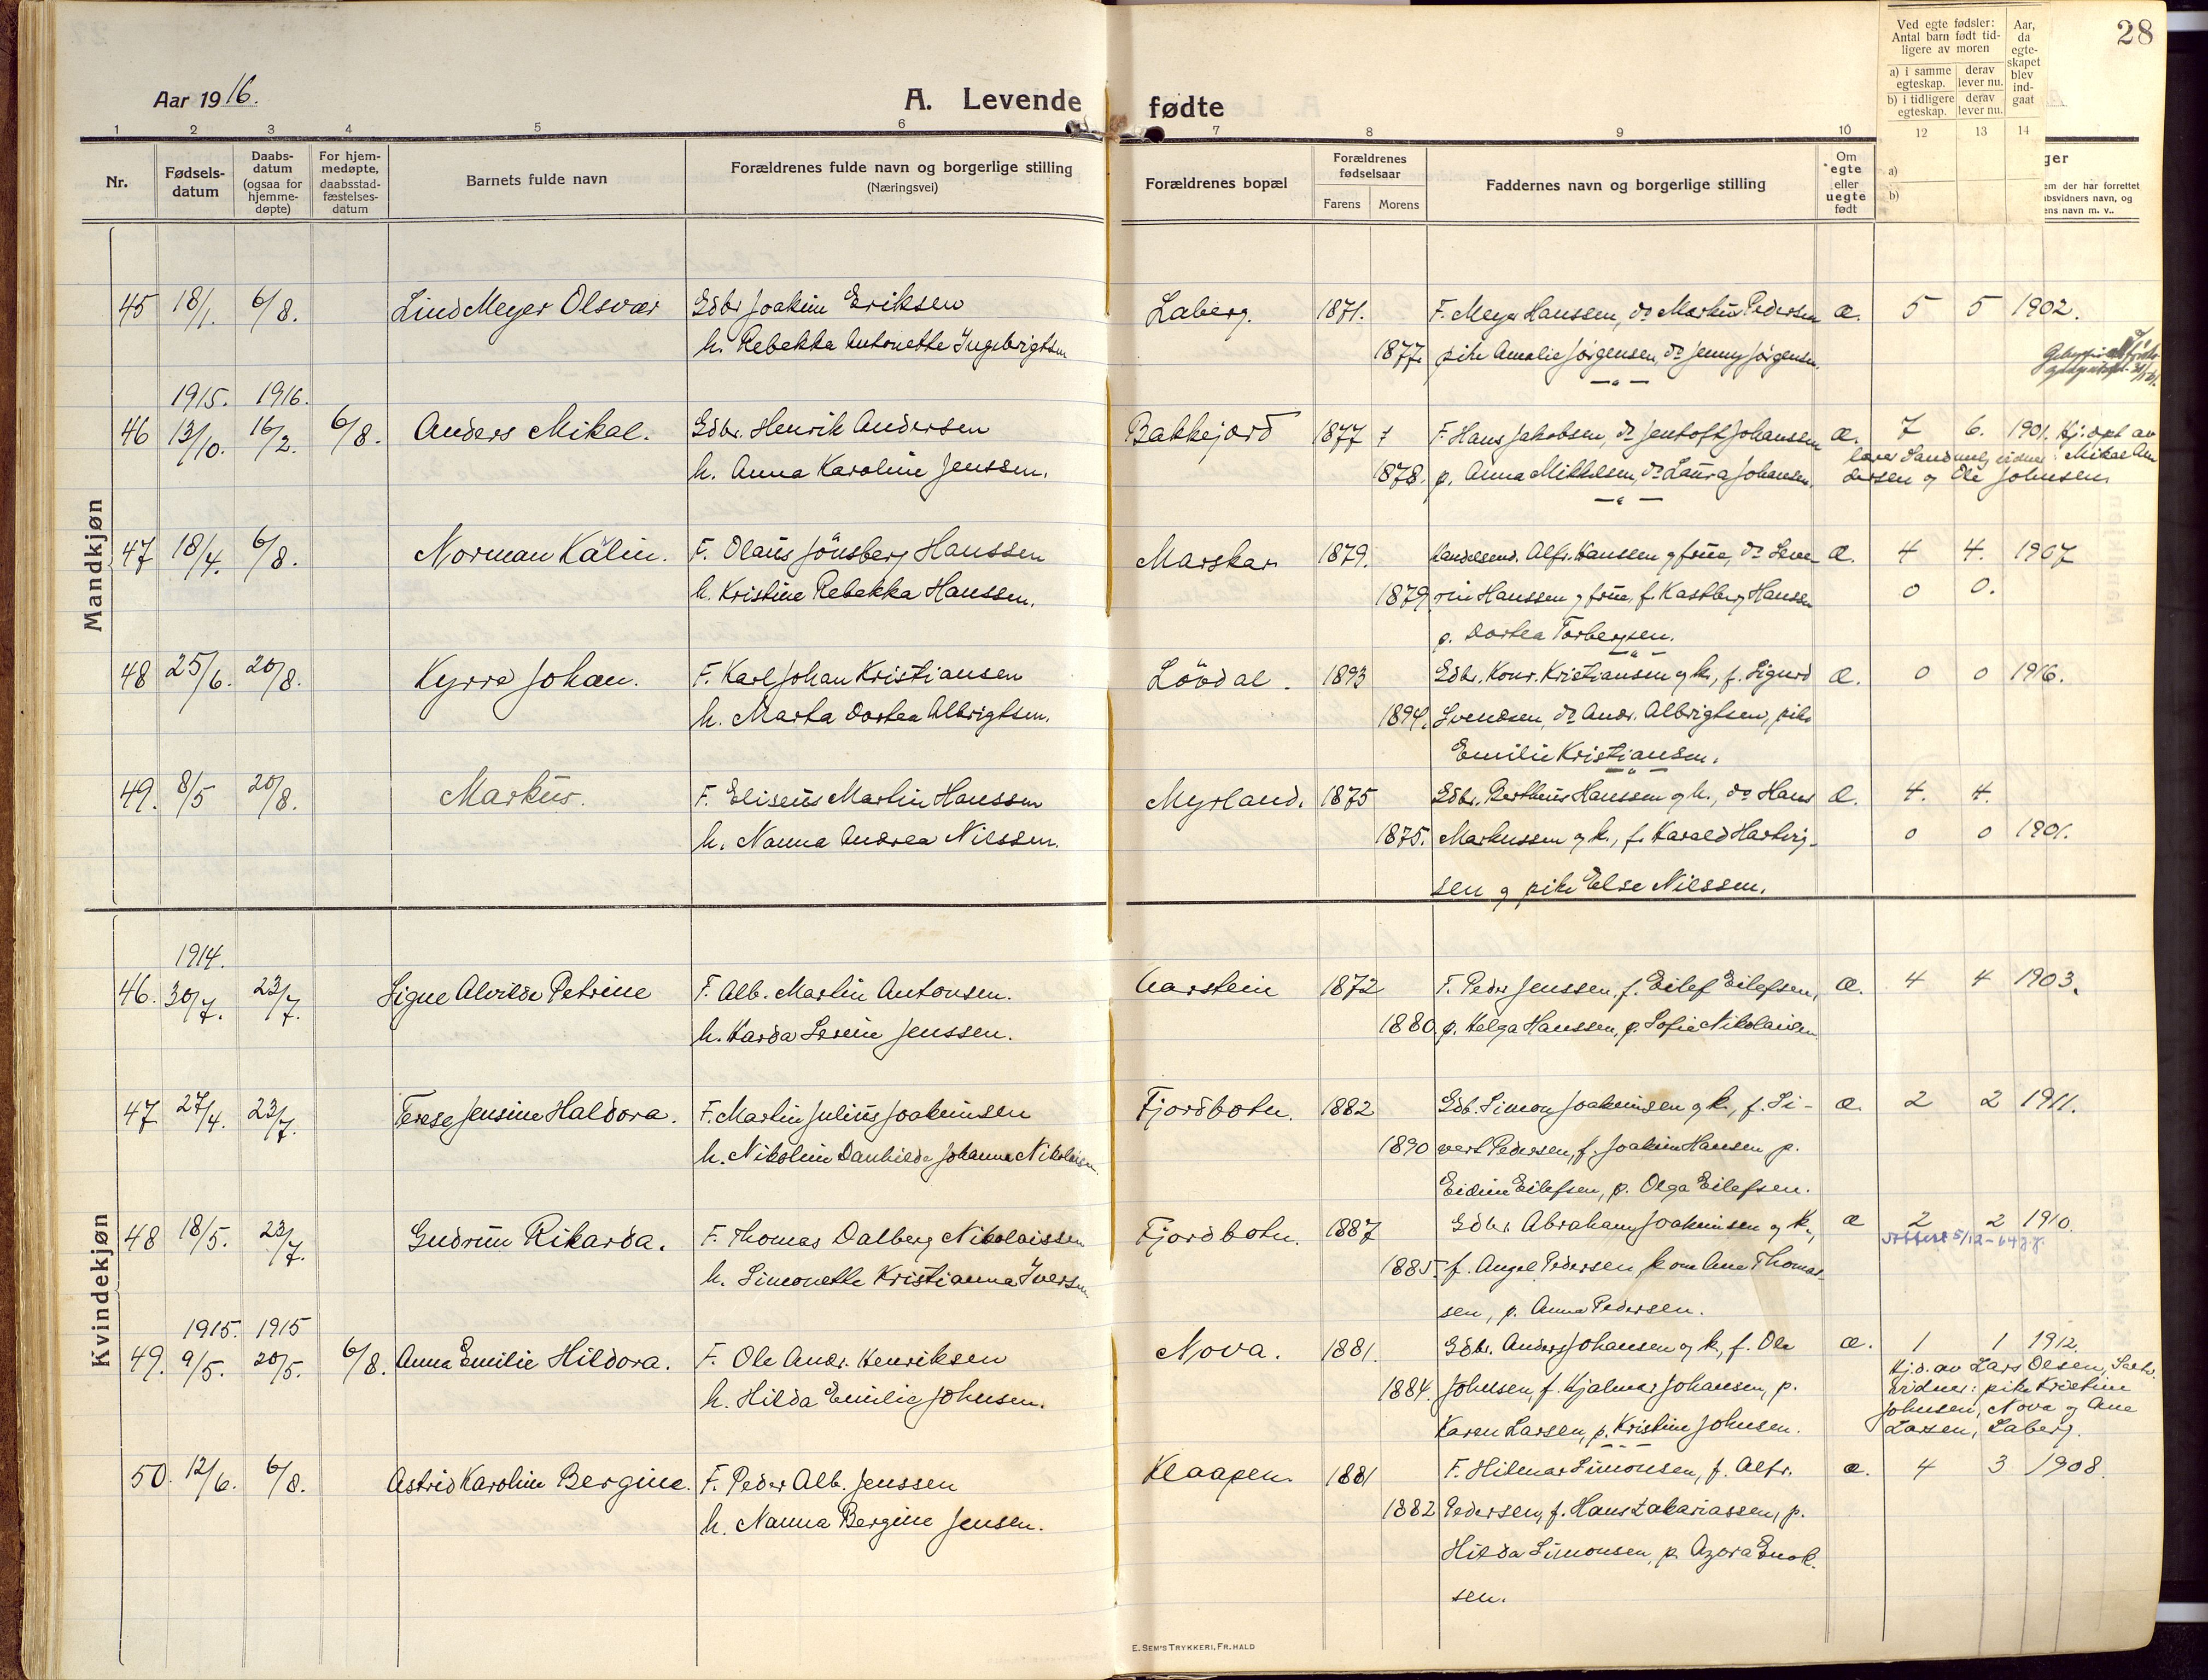 28
Aar 1916.
A. Levende fødte
1 2 3 4 5 6 7 8 9 10 12 13 14
Nr.
Fødsels-datum
Daabs-datum (ogsaa for hjemme-døpte)
For hjem-medøpte, daabsstad-fæstelses-datum
Barnets fulde navn
Forældrenes fulde navn og borgerlige stilling
(Næringsvei)
Forældrenes bopæl
Forældrenes fødselsaar
Farens Morens
Faddernes navn og borgerlige stilling
Om egte eller uegte født
Ved egte fødsler: Antal barn født tid-ligere av moren
a) i samme egteskap. derav lever nu.
b) i tidligere egteskap. derav lever nu.
Aar, da egte-skapet blev ind-gaat
a)
b)
ger
em der har forrettet
absvidners navn, og
ens navn m. v..
Mandkjøn
45 18/1. 6/8. Lind Meyer Olsvær Gdbr Joakim Eriksen Laberg. 1871. F. Meyer Hanssen, do Martin Pedersen æ. 5 5 1902.
h. Rebekka Antonette Ingebrigtsen 1877. pike Amalie Jørgensen, do Jenny Jørgensen.
1915. 1916.
46 13/10. 16/2. 6/8. Anders Mikal. Gdbr. Henrik Andersen Bakkejord 1877 F. Hans Jakobsen, do Jentoft Johansen æ. 7 6. 1901. Hj:døpt av
h. Anna Karoline Jenssen. 1878. p. Anna Mikkelsen, do Laura Johansen.
lærer Sandmel, vidner: Mikal An
dersen og Ole Johnsen.
47 18/4. 6/8. Norman Kålin. F. Olaus Jönsberg Hanssen Marskar 1879. Handelsmd. Alfr. Hanssen og frue, do Seve- æ. 4 4. 1907
h. Kristine Rebekka Hanssen. 1879 rin Hanssen og frue, f. Kastberg Hanssen 0 0.
p. Dortea Torbergsen.
48 25/6. 20/8. Kyrre Johan. F. Karl Johan Kristiansen Lövdal. 1893 Gdbr. Konr. Kristiansen og k., f. Sigurd æ. 0 0 1916.
h. Marta Dortea Albrigtsen. 1894. Svendsen, do Andr. Albrigtsen, pike
Emilie Kristiansen.
49. 8/5 20/8. Markus. F. Eliseus Martin Hanssen Myrland. 1875 Gdbr. Bertheus Hanssen og h., do Hans æ. 4. 4.
h. Nanna Andrea Nilssen. 1875. Markussen og k., f. Harald Hartvig- 0 0 1901.
sen og pike Else Nilssen.
Kvindekjøn
1914.
46. 30/7. 23/7. Signe Alvilde Petrine F. Alb. Martin Antonsen. Aarstein 1872 F. Peder Jenssen, f. Eilef Eilefsen, æ. 4 4 1903.
h. Harda Serine Jenssen. 1880. p. Helga Hanssen, p. Sofie Nikolaisen
47 27/4. 23/7. Terese Jensine Haldora. F. Martin Julius Joakimsen Fjordbotn. 1882 Gdb. Simon Joakimsen og k., f. Si- æ. 2 2 1911.
h. Nikoline Danhilda Johanna Nikolaisen. 1890 vert Pedersen, f. Joakim Hansen p.
Eidine Eilefsen, p. Olga Eilefsen.
48 18/5. 23/7. Gudrun Rikarda. F. Thomas Dalberg Nikolaissen Fjordbotn. 1887 Gdbr. Abraham Joakimsen og k., æ 2 2 1910.
h. Simonette Kristianna Iversen 1885. f. Angel Pedersen, kone Ane Thomas-
sen, p. Anna Pedersen.
1915. 1915
49. 9/5. 20/5. 6/8. Anna Emilie Hildora. F. Ole Andr. Henriksen Nova. 1881. Gdbr. Anders Johansen og k., f. Ole æ. 1 1 1912.
h. Hilda Emilie Johnsen. 1884. Johnsen, f. Hjalmar Johansen, p.
Karen Larsen, p. Kristine Johnsen.
Hj.d. av Lars Olsen,
vidner: pike Kristine
Johnsen, Nova og Ane
Larsen, Laberg.
50. 12/6. 6/8. Astrid Karoline Bergine. F. Peder Alb. Jenssen Klaapen. 1881 F. Hilmar Simonsen, f. Alfr. æ. 4 3 1908.
h. Nanna Bergine Jensen. 1882 Pedersen, f. Hans Zakariassen, p.
Hilda Simonsen, p. Azora Enok-
sen.
E. SEM'S TRYKKERI, FR. HALD